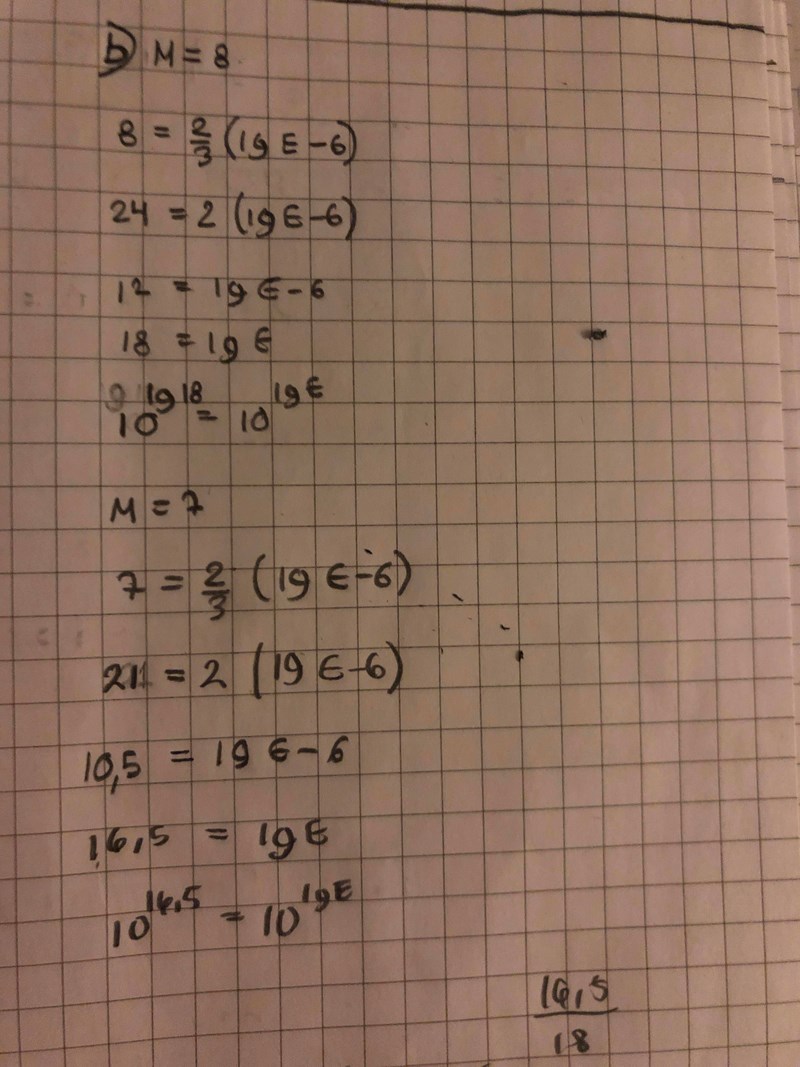 b) M = 8
8 = 2/3 (lg E - 6)
24 = 2 (lg E - 6)
12 = lg E - 6
18 = lg E
10^lg 18 = 10^lg E
M = 7
7 = 2/3 (lg E - 6)
21 = 2 (lg E - 6)
10,5 = lg E - 6
16,5 = lg E
10^16,5 = 10^lg E
16,5
18